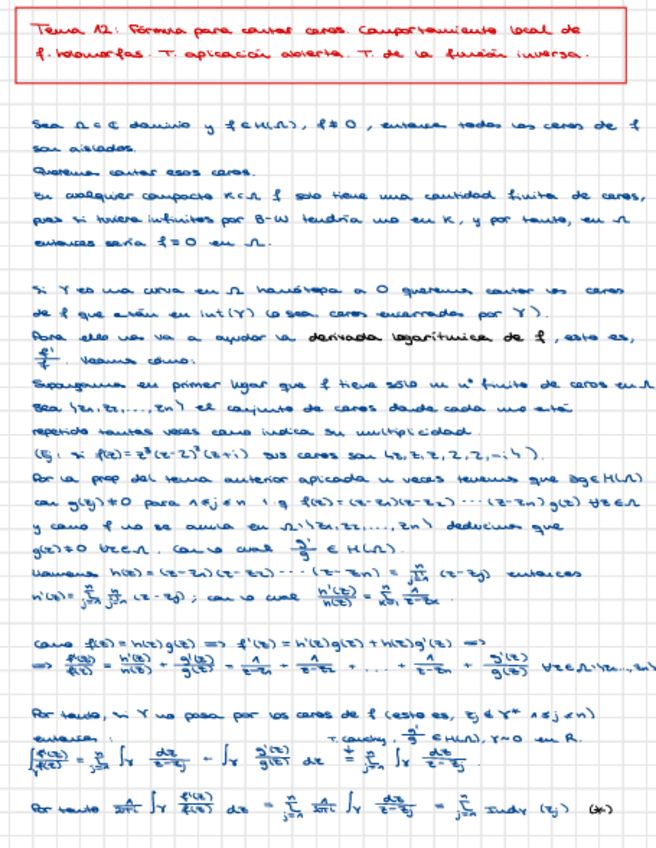 Tema 12: Fórmula para contar ceros. Comportamiento local de
f. holomorfas. T. aplicación abierta. T. de la función inversa.
Sea Ω ⊂ ℂ dominio y f ∈ H(Ω), f ≢ 0, entonces todos los ceros de f
son aislados.
Queremos contar esos ceros.
En cualquier compacto K ⊂ Ω f solo tiene una cantidad finita de ceros,
pues si tuviera infinitos por B-W tendría uno en K, y por tanto, en Ω
entonces sería f ≡ 0 en Ω.
Si γ es una curva en Ω homótopa a 0 queremos contar los ceros
de f que están en int(γ) (o sea, ceros encerrados por γ).
Para ello nos va a ayudar la derivada logarítmica de f, esto es,
f'/f. Veamos cómo:
Supongamos en primer lugar que f tiene sólo un nº finito de ceros en Ω
Sea {z1, z2, ..., zn} el conjunto de ceros donde cada uno está
repetido tantas veces como indica su multiplicidad.
(Ej: si f(z) = z³(z-2)²(z+i) sus ceros son {z, z, z, 2, 2, -i}).
Por la prop del tema anterior aplicada n veces tenemos que ∃g ∈ H(Ω)
con g(zj) ≠ 0 para 1 ≤ j ≤ n t.q f(z) = (z-z1)(z-z2) ··· (z-zn) g(z) ∀z ∈ Ω
y como f no se anula en Ω \ {z1, z2, ..., zn} deducimos que
g(z) ≠ 0 ∀z ∈ Ω. Con lo cual g'/g ∈ H(Ω).
Llamemos h(z) = (z-z1)(z-z2) ····· (z-zn) = ∏_{j=1}^n (z-zj) entonces
h'(z) = ∑_{j=1}^n ∏ (z-zj); con lo cual h'(z)/h(z) = ∑_{k=1}^n 1/(z-zk).
Como f(z) = h(z)g(z) => f'(z) = h'(z)g(z) + h(z)g'(z) =>
=> f'(z)/f(z) = h'(z)/h(z) + g'(z)/g(z) = 1/(z-z1) + 1/(z-z2) + ... + 1/(z-zn) + g'(z)/g(z) ∀z ∈ Ω \ {z1, ..., zn}
Por tanto, si γ no pasa por los ceros de f (esto es, zj ∉ γ* 1 ≤ j ≤ n)
entonces:
T. Cauchy, g'/g ∈ H(Ω), γ ~ 0 en Ω.
∫_γ f'(z)/f(z) = ∑_{j=1}^n ∫_γ dz/(z-zj) + ∫_γ g'(z)/g(z) dz = ∑_{j=1}^n ∫_γ dz/(z-zj).
Por tanto 1/2πi ∫_γ f'(z)/f(z) dz = ∑_{j=1}^n 1/2πi ∫_γ dz/(z-zj) = ∑_{j=1}^n Ind_γ (zj) (*)